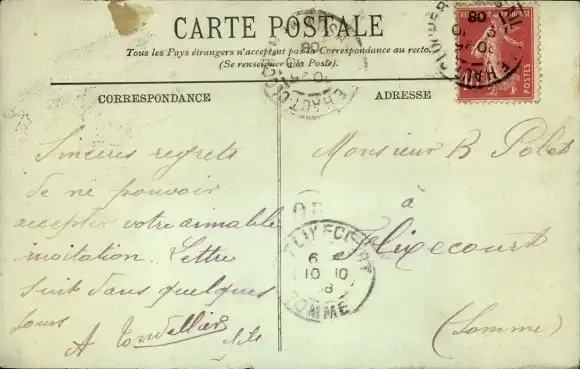 CARTE POSTALE
Tous les Pays étrangers n'acceptent pas la Correspondance au recto.
(Se renseigner à la Poste).
CORRESPONDANCE
Sincères regrets
de ne pouvoir
accepter votre aimable
invitation. Lettre
suit dans quelques
jours
A fils
ADRESSE
Monsieur B Polet
à
Flixecourt
(Somme)
FLIXECOURT
6
10 10
08
SOMME
OR
POSTES
10